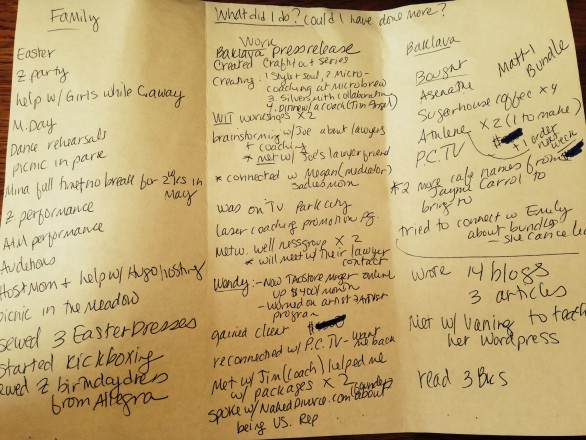 Family
Easter
Z party
help w/ Girls while C. away
M. Day
Dance rehearsals
picnic in park
full time no break for 2 wks in May
Z performance
A+M performance
Auditions
Host Mom + help w/ Hugo hosting
picnic in the meadow
sewed 3 Easter Dresses
started kickboxing
sewed Z birthday dress
from Allegra
What did I do? Could I have done more?
Work
Baklava Press release
Created Craft of art series
Creating: 1 Style + soul, 2 Micro-
coaching at microbrew
3. Silversmith collaboration
4. Dinner w/ a coach (Tim
WIT workshops x2
brainstorming w/ Joe about lawyers
+ coaching
* met w/ Joe's lawyer friend
* connected w/ Megan (mediator)
Sadies mom
was on TV Park City
laser coaching promotion pg.
Netw. wellness group x 2
* will meet w/ their lawyer
contact
Wendy: - Now TAOStore mngr online
up $400/month
- worked on artist 2 Artist
program
gained client $
reconnected w/ P.C. TV - want
me back
Met w/ Jim (coach) helped me
w/ packages x 2
spoke w/ NakedDivorce.com about
being US. Rep
Baklava
Bought
Matt-1
Bundle
Asenatha
Sugarhouse coffee x 4
Athlene x 2 (1 to make)
P.C. TV
$
+ 1 order
next
week
*2 more cafe names from
Jayne Carrol to
bring to
tried to connect w Emily
about bundles
- she cancelled
wrote 14 blogs
3 articles
Met w/ Vaning to teach
her wordpress
read 3 Bks